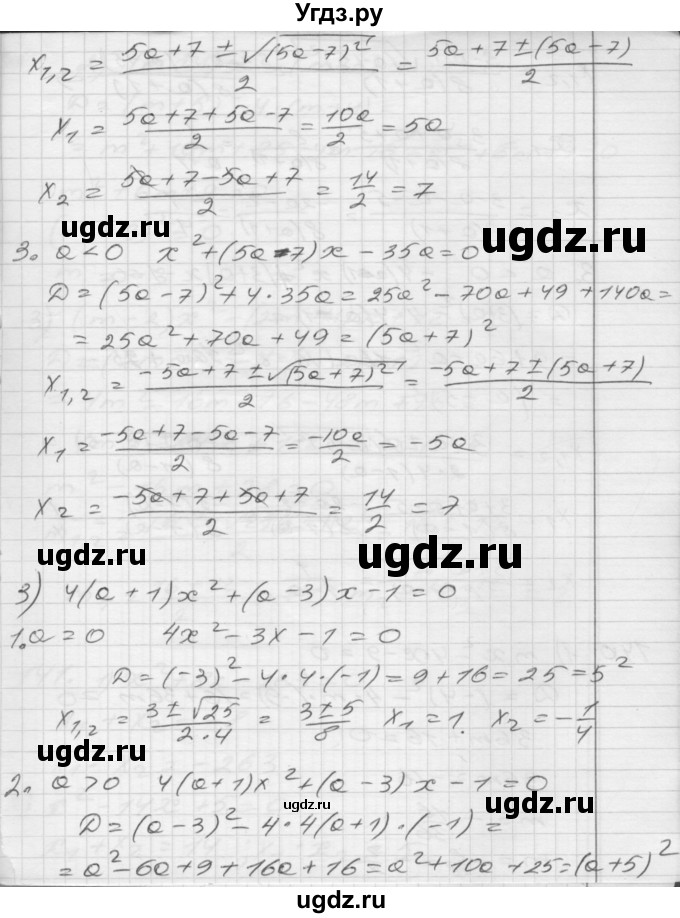 Угдз.ру
x₁,₂ = (5a + 7 ± √(5a - 7)²)/2 = (5a + 7 ± (5a - 7))/2
x₁ = (5a + 7 + 5a - 7)/2 = 10a/2 = 5a
x₂ = (5a + 7 - 5a + 7)/2 = 14/2 = 7
ugdz.ru
ugdz.ru
3. a < 0 x² + (5a - 7)x - 35a = 0
ugdz.ru
D = (5a - 7)² + 4 · 35a = 25a² - 70a + 49 + 140a =
= 25a² + 70a + 49 = (5a + 7)²
x₁,₂ = (-5a + 7 ± √(5a + 7)²)/2 = (-5a + 7 ± (5a + 7))/2
x₁ = (-5a + 7 - 5a - 7)/2 = -10a/2 = -5a
x₂ = (-5a + 7 + 5a + 7)/2 = 14/2 = 7
ugdz.ru
ugdz.ru
3) 4(a + 1)x² + (a - 3)x - 1 = 0
ugdz.ru
1. a = 0 4x² - 3x - 1 = 0
D = (-3)² - 4 · 4 · (-1) = 9 + 16 = 25 = 5²
x₁,₂ = (3 ± √25)/(2 · 4) = (3 ± 5)/8 x₁ = 1. x₂ = -1/4
ugdz.ru
ugdz.ru
2. a > 0 4(a + 1)x² + (a - 3)x - 1 = 0
ugdz.ru
D = (a - 3)² - 4 · 4(a + 1) · (-1) =
ugdz.ru
= a² - 6a + 9 + 16a + 16 = a² + 10a + 25 = (a + 5)²
ugdz.ru